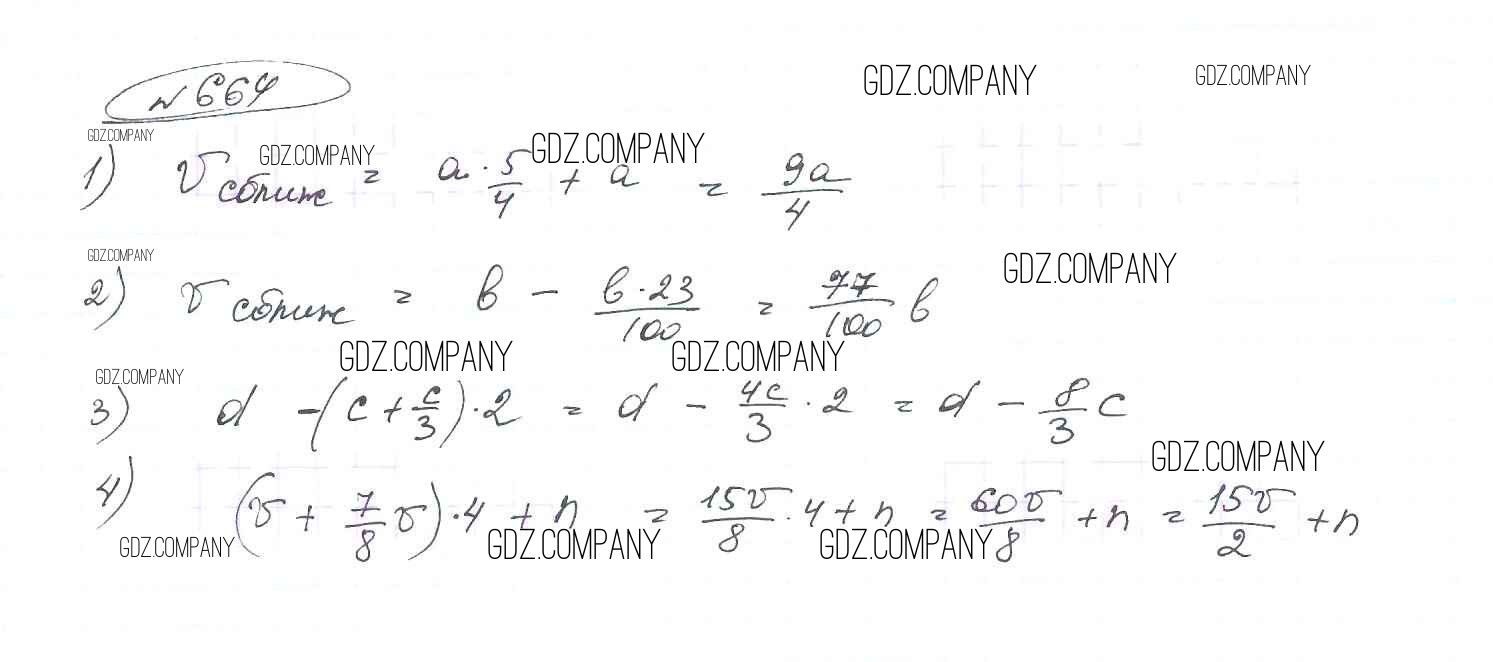 № 664
GDZ.COMPANY GDZ.COMPANY
GDZ.COMPANY GDZ.COMPANY GDZ.COMPANY
1) v сближ = a · 5/4 + a = 9a/4
GDZ.COMPANY GDZ.COMPANY
2) v сближ = в − в·23/100 = 77/100 в
GDZ.COMPANY GDZ.COMPANY GDZ.COMPANY
3) d − (c + c/3) · 2 = d − 4c/3 · 2 = d − 8/3 c
GDZ.COMPANY
4) (v + 7/8 v) · 4 + n = 15v/8 · 4 + n = 60v/8 + n = 15v/2 + n
GDZ.COMPANY GDZ.COMPANY GDZ.COMPANY